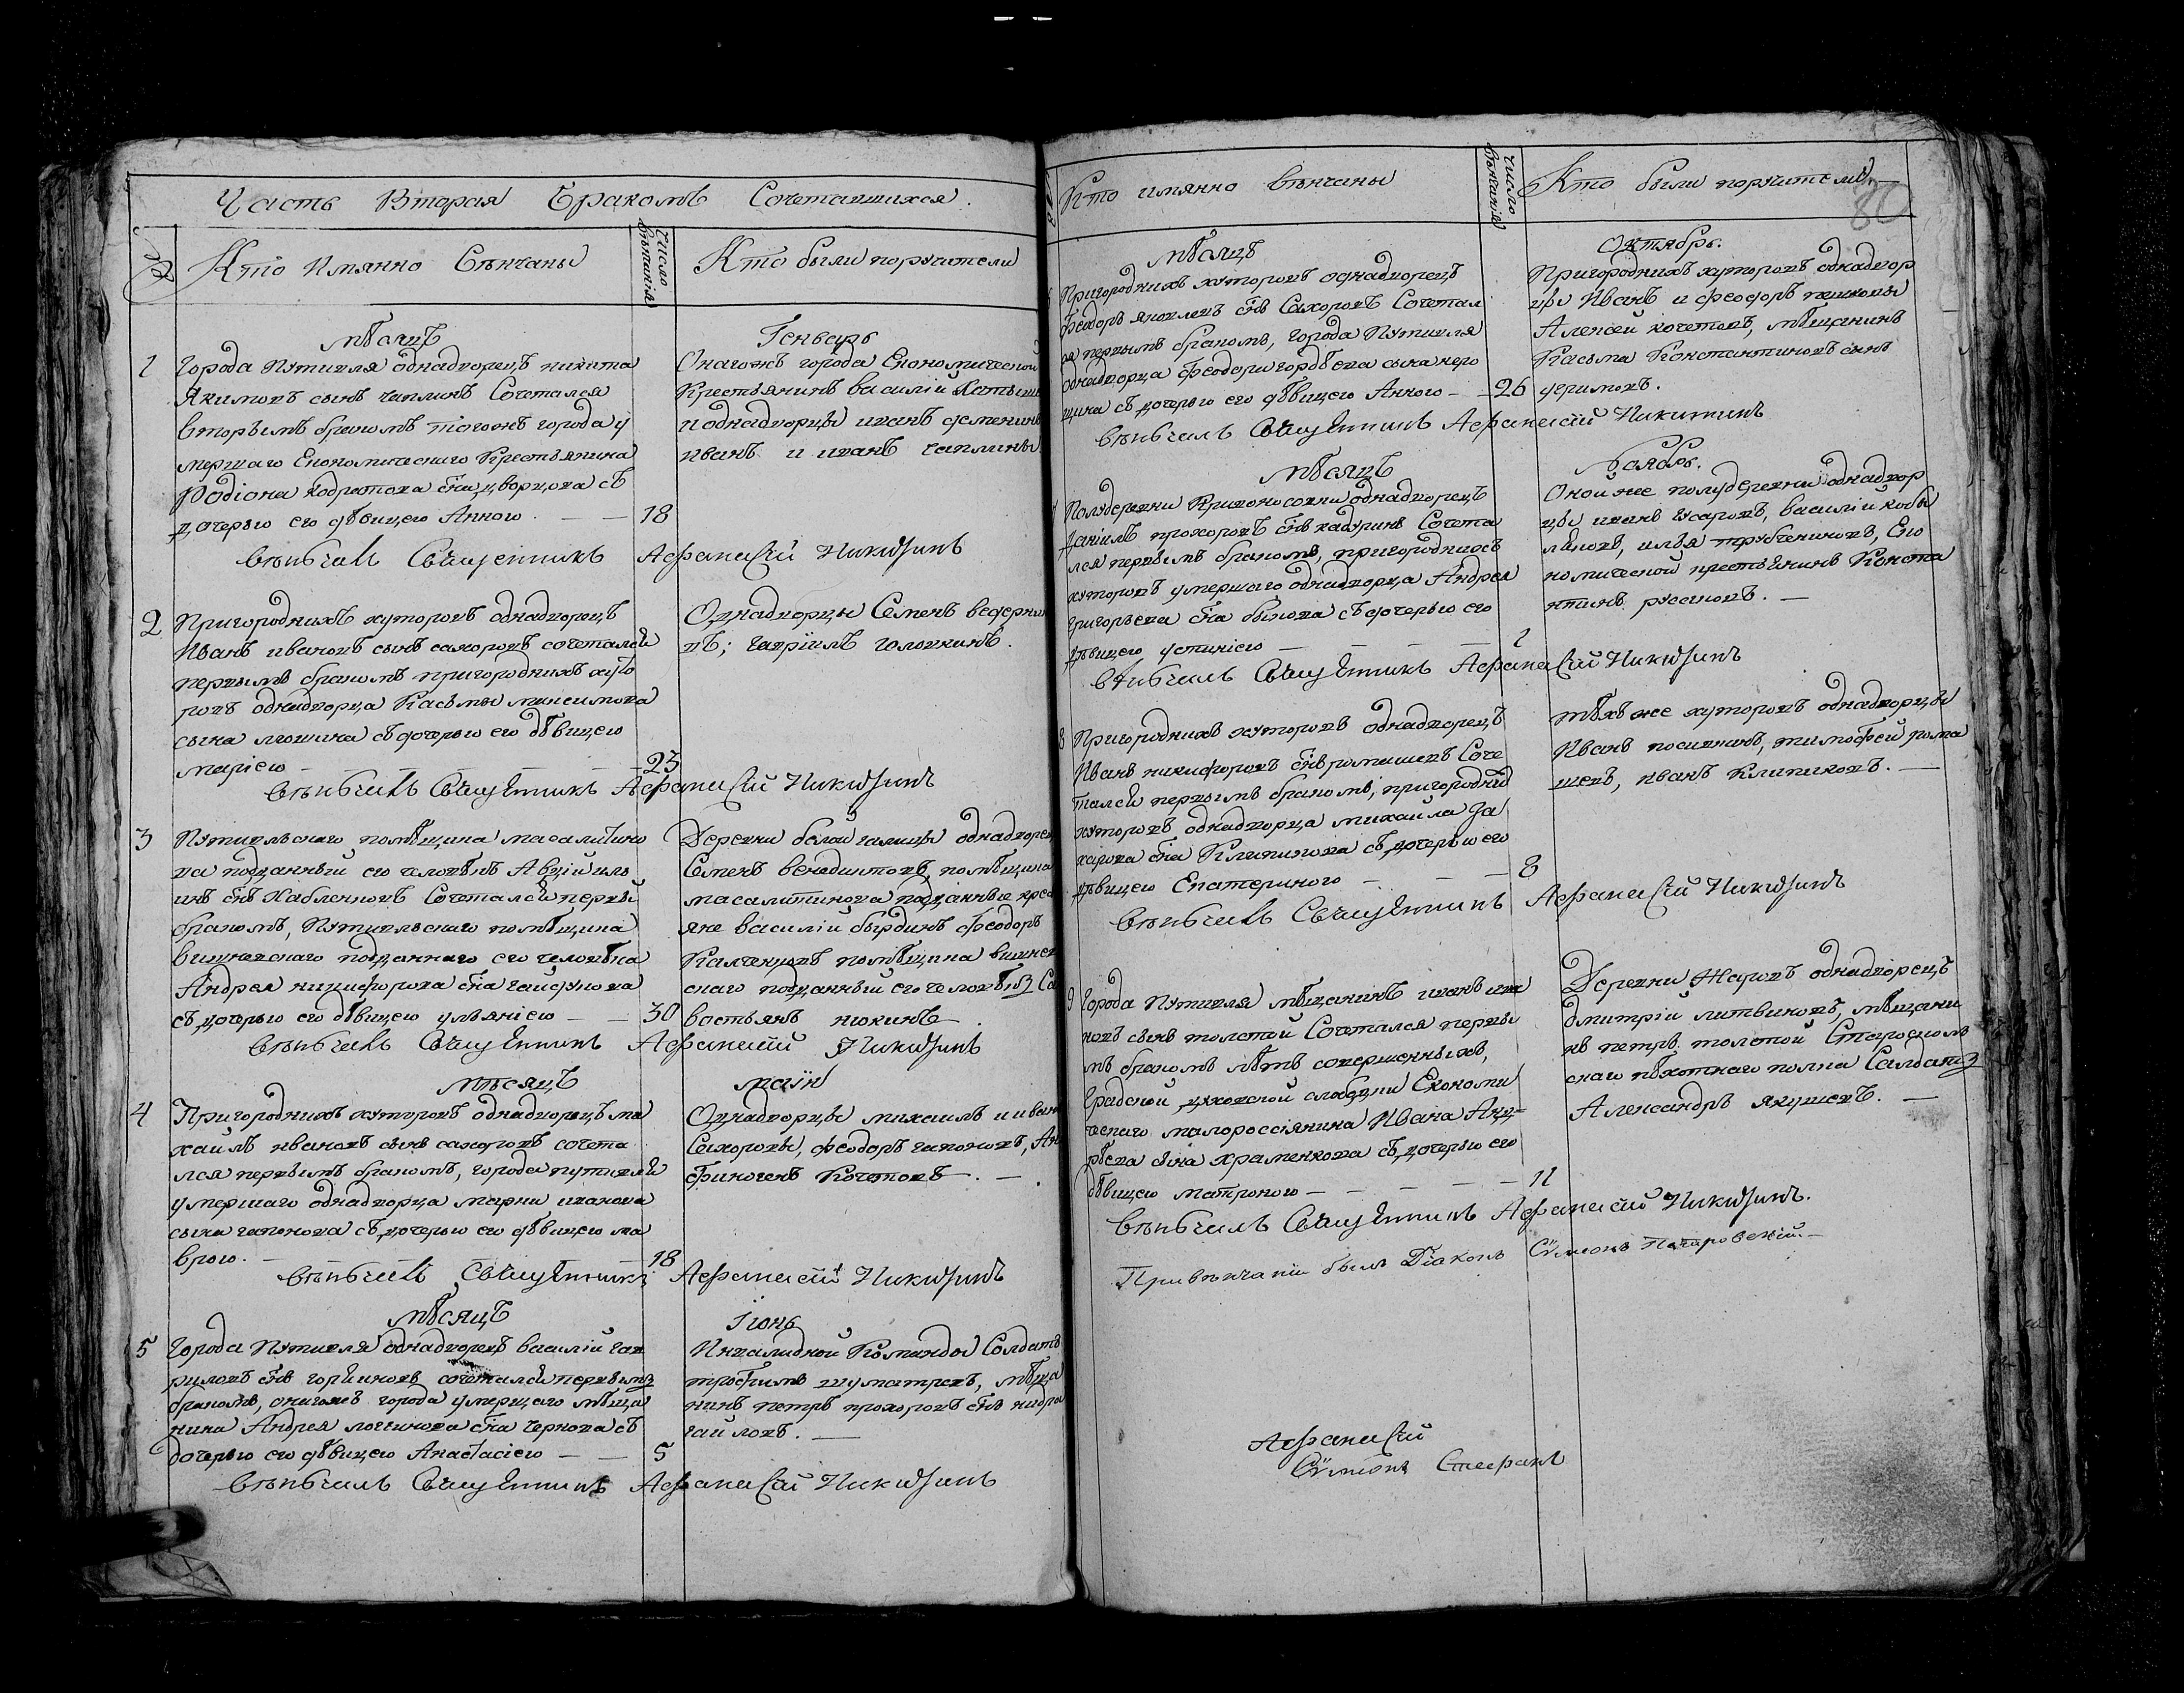 Часть Вторая Бракомъ Сочетавшихся.
Кто Имянно Венчаны
Число венчанiя
Кто были поручители
мѣсяцъ
Генварь
1
города Путивля однадворецъ никита
Якимовъ сынъ чаплинъ Сочетался
вторымъ бракомъ тогожъ города у
мершаго Економическаго Крестьянина
Родiона
дочерью его дѣвицею Анною.
18
Онагожъ города Економической
Крестьянинъ василiй
иванъ и иванъ чаплины
венчалъ Священникъ Афанасiй Никитинъ
2
Пригороднихъ хуторовъ однадворецъ
Иванъ ивановъ сынъ сахоровъ сочетался
первымъ бракомъ пригороднихъ хуто
ровъ однадворца Касьмы максимова
сына мошина съ дочерью его дѣвицею
марiею
23
Однадворцы Семенъ ведерни
въ; гаврiилъ головкинъ.
венчалъ Священникъ Афанасiй Никитинъ
3
Путивльскаго помѣщика масалитино
ва подданный его человѣкъ
инъ снъ Сочетался первы
бракомъ, Путивльскаго помѣщика
вишневскаго подданнаго его человѣка
Андрея никифорова сна гайдукова
съ дочерью его дѣвицею ульянiею
30
Деревни белой галицы однадворец
Семенъ помѣщика
масалитинова подданные крес
яне василiй бырдинъ феодоръ
Калченковъ помѣщика вишнев
скаго подданный его человѣкъ Са
востьянъ нюкинъ
венчалъ Священникъ Афанасiй Никитинъ
месяцъ
маiи
4
Пригороднихъ хуторовъ однадворецъ ми
хаилъ ивановъ сынъ сахоровъ сочета
лся первымъ бракомъ, города путивля
умершаго однадворца марки иванова
сына гапонова съ дочерью его дѣвицею ма
врою.
18
Однадворцы михаилъ и иван
Сахоровы, феодоръ гапоновъ, Ан
финогенъ Кочетовъ.
венчалъ Священникъ Афанасiй Никитинъ
мѣсяцъ
Iюнь
5
города Путивля однадворецъ василiй гав
риловъ снъ горяиновъ сочетался первымъ
бракомъ, онагожъ города умершаго мѣща
нина Андрея логинова сна чернова съ
дочерью его дѣвицею Анастасiею
5
Инвалидной Команды Солдатъ
трофимъ мѣща
нинъ петръ прохоровъ снъ
гайловъ.
венчалъ Священникъ Афанасiй Никитинъ
Кто имянно венчаны
Число венчанiя
Кто были поручители
80
мѣсяцъ
Октябрь.
Пригороднихъ хуторовъ однадворецъ
феодоръ яковлевъ снъ Сахоровъ Сочетал
ся первымъ бракомъ, города Путивля
однадворца феодора гордѣева сына
щина съ дочерью его дѣвицею Анною
26
Пригороднихъ хуторовъ однадвор
цы Иванъ и феодоръ
Алексей кочетовъ, мѣщанинъ
Касьма Константиновъ сынъ
венчалъ Священникъ Афанасiй Никитинъ
мѣсяцъ
Ноябрь.
Полудеревни однадворецъ
Данiилъ прохоровъ снъ кадуринъ Сочета
лся первымъ бракомъ, пригороднихъ
хуторовъ умершаго однадворца Андрея
григорьева сна быкова съ дочерью его
дѣвицею устинiею
Оной же полудеревни однадвор
цы иванъ гусаровъ, василiй кобы
ляковъ, илья трубчениновъ, Еко
номической крестьянинъ Конста
нтинъ русановъ.
венчалъ Священникъ Афанасiй Никитинъ
8
Пригороднихъ хуторовъ однадворецъ
Иванъ никифоровъ снъ ромашевъ Соче
тался первымъ бракомъ, пригороднiй
хуторовъ однадворца михаила За
харова сна Клипикова съ дочерью его
дѣвицею Екатериною
8
тѣхъ же хуторовъ однадворцы
Иванъ тимофей рома
шевъ, иванъ Клипиковъ.
венчалъ Священникъ Афанасiй Никитинъ
9
города Путивля мѣщанинъ иванъ ива
новъ сынъ толстой Сочетался первы
мъ бракомъ лѣтъ совершенныхъ,
градской слободки Економи
ческаго малороссiянина Ивана Анд=
рѣева сына храменкова съ дочерью его
дѣвицею матроною
11
Деревни Жаровъ однадворецъ
дмитрiй литвиновъ, мѣщани
нъ петръ толстой Староскол
скаго пѣхотнаго полка Салдатъ
Александръ якушевъ.
венчалъ Священникъ Афанасiй Никитинъ.
При венчанiи былъ Дiаконъ Сѵмеонъ Петровскiй
Афанасiй
Сѵмеонъ Стефанъ